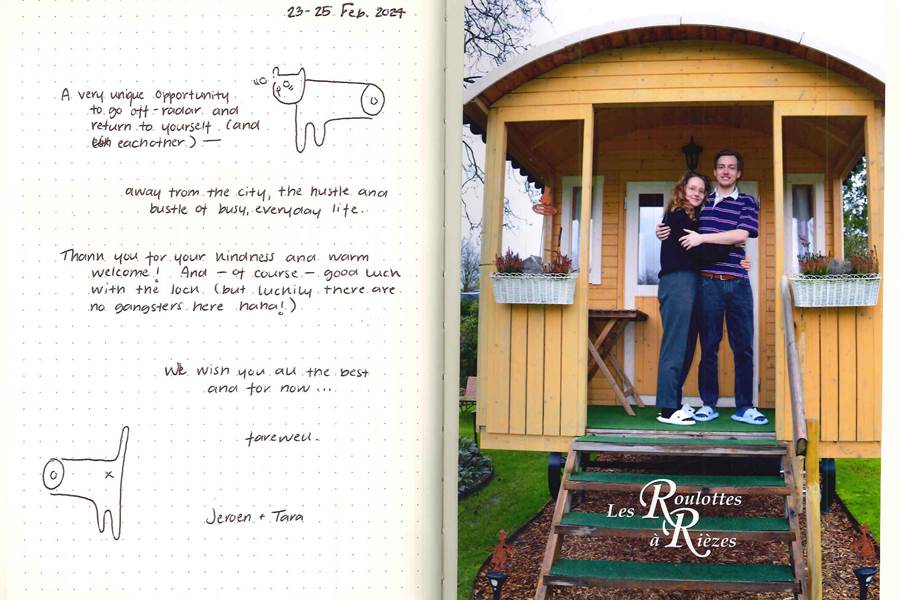 23-25 Feb. 2024
A very unique opportunity
to go off-radar and
return to yourself (and
eachother) —
away from the city, the hustle and
bustle of busy, everyday life.
Thank you for your kindness and warm
welcome! And – of course – good luck
with the lock. (but luckily there are
no gangsters here haha!)
We wish you all the best
and for now ...
farewell.
Jeroen + Tara
Les Roulottes
à Rièzes